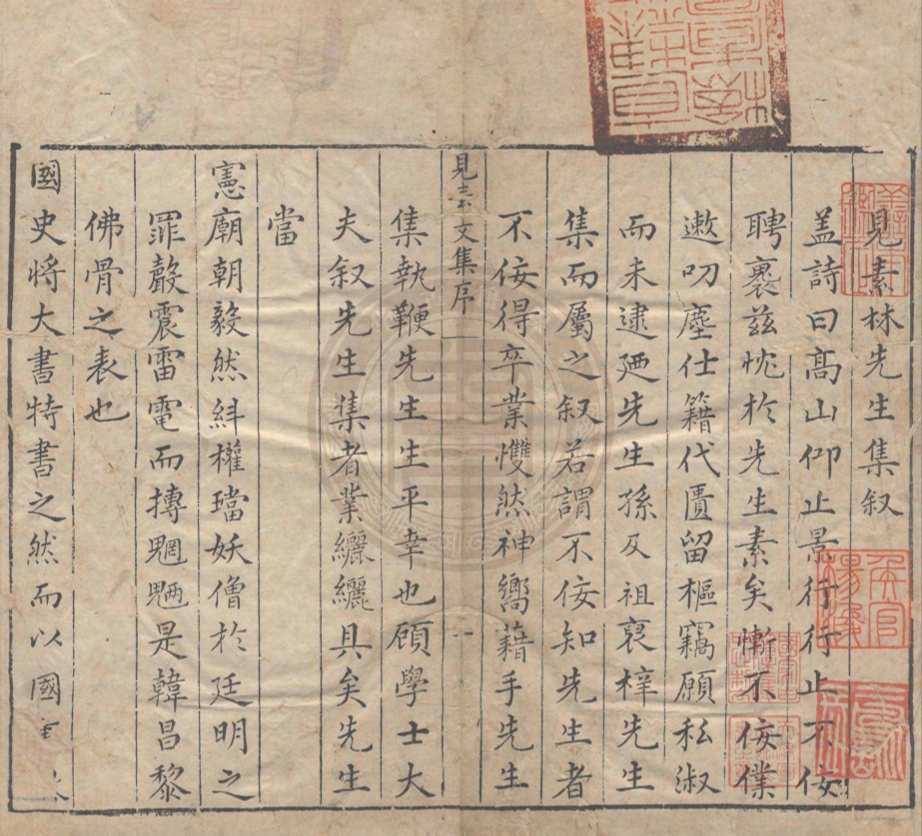 見素林先生集叙
盖詩曰髙山仰止景行行止不佞
聘褱兹忱於先生素矣慚不佞僕
遫叨塵仕籍代匱留樞竊願私淑
而未逮廼先生孫及祖裒梓先生
集而屬之叙若謂不佞知先生者
不佞得卒業戄然神嚮藉手先生
見素文集序 一
集執鞭先生生平幸也顧學士大
夫叙先生集者業纚纚具矣先生
當
憲廟朝毅然糾權璫妖僧於廷明之
罪磬震雷電而摶魍魎是韓昌黎
佛骨之表也
國史將大書特書之然而以國